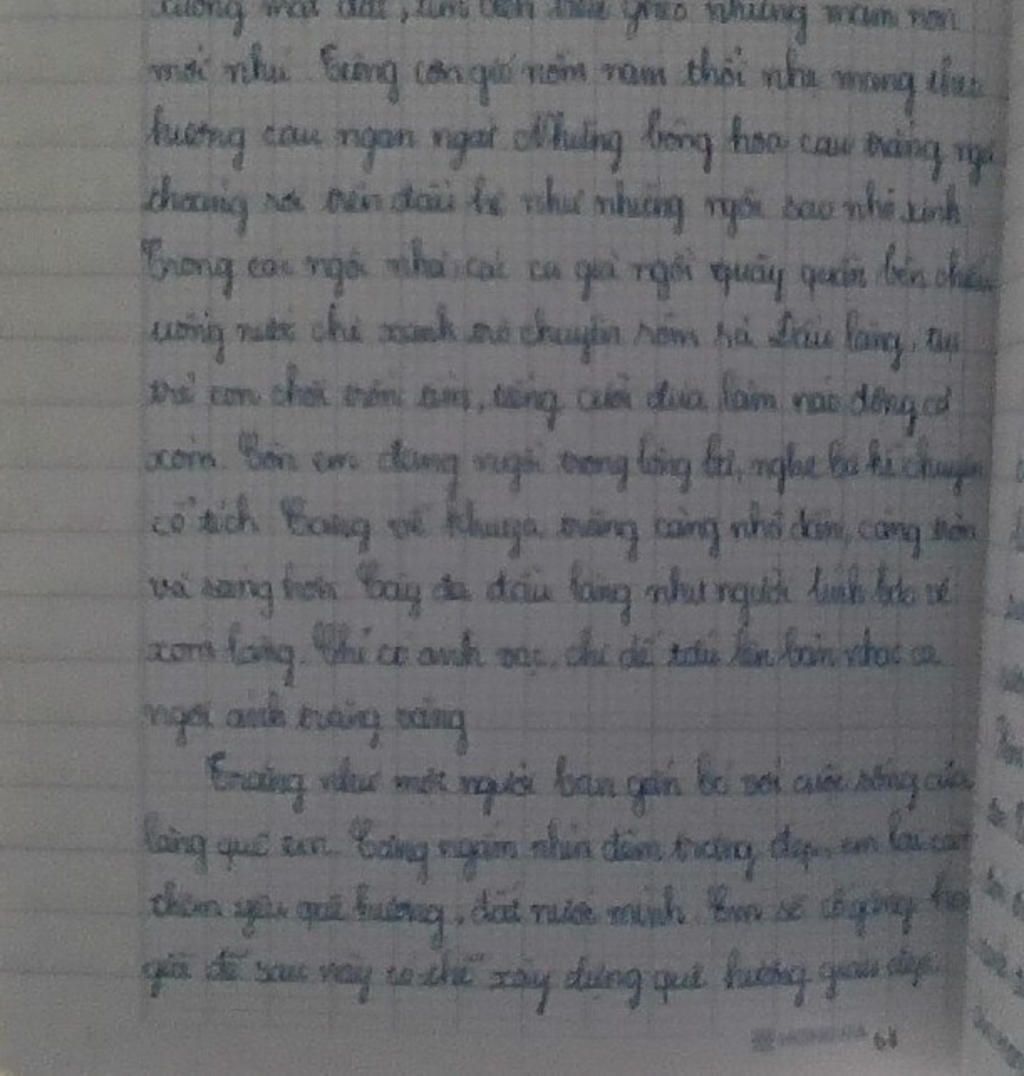 xuống mặt đất, làm cho gieo những mầm non
mới nhú. Từng cơn gió nồm nam thổi nhẹ mang theo
hương cau ngan ngát. Những bông hoa cau trắng
rơi trên đầu hè như những ngôi sao nhỏ xinh
Trong các ngôi nhà, các cụ già ngồi quây quần bên chiếu
uống nước chè xanh trò chuyện rôm rả. Đầu làng, tụi
trẻ con chơi trốn tìm, tiếng cười đùa làm náo động cả
xóm. Còn em đang ngồi trong lòng bà, nghe bà kể chuyện
cổ tích. Càng về khuya, trăng càng nhỏ dần, càng tròn
và sáng hơn. Cây đa đầu làng như người lính bảo vệ
xóm làng. Chỉ có anh vạc, chị dế tấu lên bản nhạc ca
ngợi ánh trăng vàng
Trăng như một người bạn gắn bó với cuộc sống của
làng quê em. Càng ngắm nhìn đêm trăng đẹp, em lại càng
thêm yêu quê hương, đất nước mình. Em sẽ cố gắng học
giỏi để sau này có thể xây dựng quê hương giàu đẹp.
64